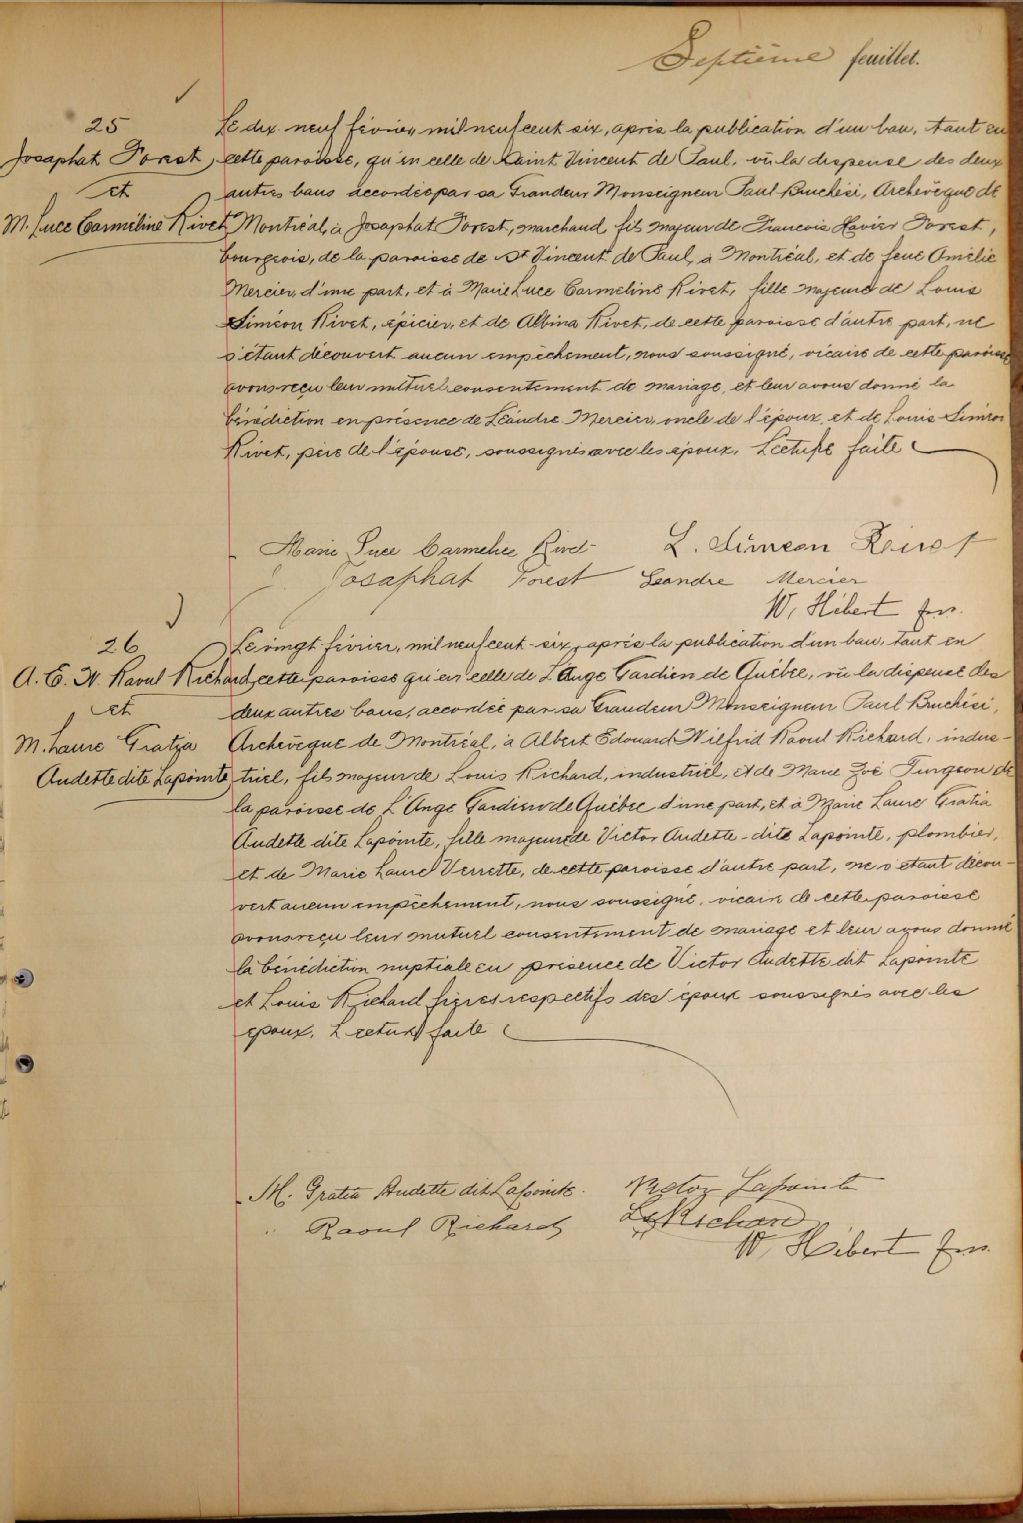 Septième feuillet.
25
Josaphat Forest
et
M. Luce Carméline Rivet
Le dix-neuf février, mil neuf cent six, après la publication d'un ban, tant en
cette paroisse, qu'en celle de Saint Vincent de Paul, vû la dispense des deux
autres bans accordée par sa Grandeur Monseigneur Paul Bruchési, Archevêque de
Montréal, à Josaphat Forest, marchand, fils majeur de Francois Xavier Forest,
bourgeois, de la paroisse de St Vincent de Paul, à Montréal, et de feue Amélie
Mercier, d'une part, et à Marie Luce Carméline Rivet, fille majeure de Louis
Siméon Rivet, épicier, et de Albina Rivet, de cette paroisse d'autre part, ne
s'étant découvert aucun empêchement, nous soussigné, vicaire de cette paroisse
avons reçu leur mutuel consentement de mariage, et leur avons donné la
bénédiction en présence de Léandre Mercier, oncle de l'époux, et de Louis Siméon
Rivet, père de l'épouse, soussignés avec les époux. Lecture faite
Marie Luce Carmelice Rivet L. Siméon Rivet
Josaphat Forest Leandre Mercier
W. Hébert ptre.
26
A. E. W. Raoul Richard
et
M. Laure Gratia
Audette dite Lapointe
Le vingt février, mil neuf cent-six, après la publication d'un ban, tant en
cette paroisse qu'en celle de L'Ange Gardien de Québec, vû la dispense des
deux autres bans, accordée par sa Grandeur Monseigneur Paul Bruchési,
Archevêque de Montréal, à Albert Edouard Wilfrid Raoul Richard, indus-
triel, fils majeur de Louis Richard, industriel, et de Marie Zoé Turgeon de
la paroisse de L'Ange Gardien de Québec d'une part, et à Marie Laure Gratia
Audette dite Lapointe, fille majeure de Victor Audette-dite Lapointe, plombier,
et de Marie Laure Verrette, de cette paroisse d'autre part, ne s'étant décou-
vert aucun empêchement, nous soussigné, vicaire de cette paroisse
avons reçu leur mutuel consentement de mariage et leur avons donné
la bénédiction nuptiale en présence de Victor Audette dit Lapointe
et Louis Richard frères respectifs des époux soussignés avec les
époux. Lecture faite
M. Gratia Audette dit Lapointe. Victor Lapointe
Raoul Richard Ls Richard
W. Hébert ptre.